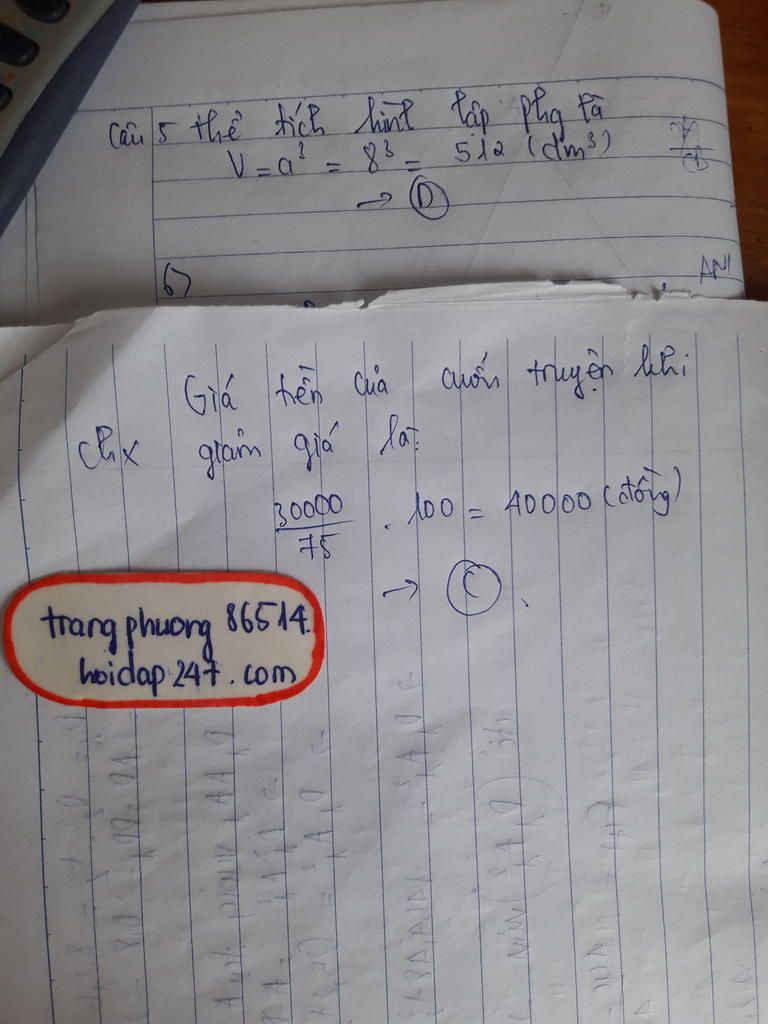 Câu 5 thể tích hình lập phg là
V = a³ = 8³ = 512 (dm³)
→ D
6)
Giá tiền của cuốn truyện khi
chx giảm giá là:
30000/75 . 100 = 40000 (đồng)
→ C.
trangphuong 86514.
hoidap247.com